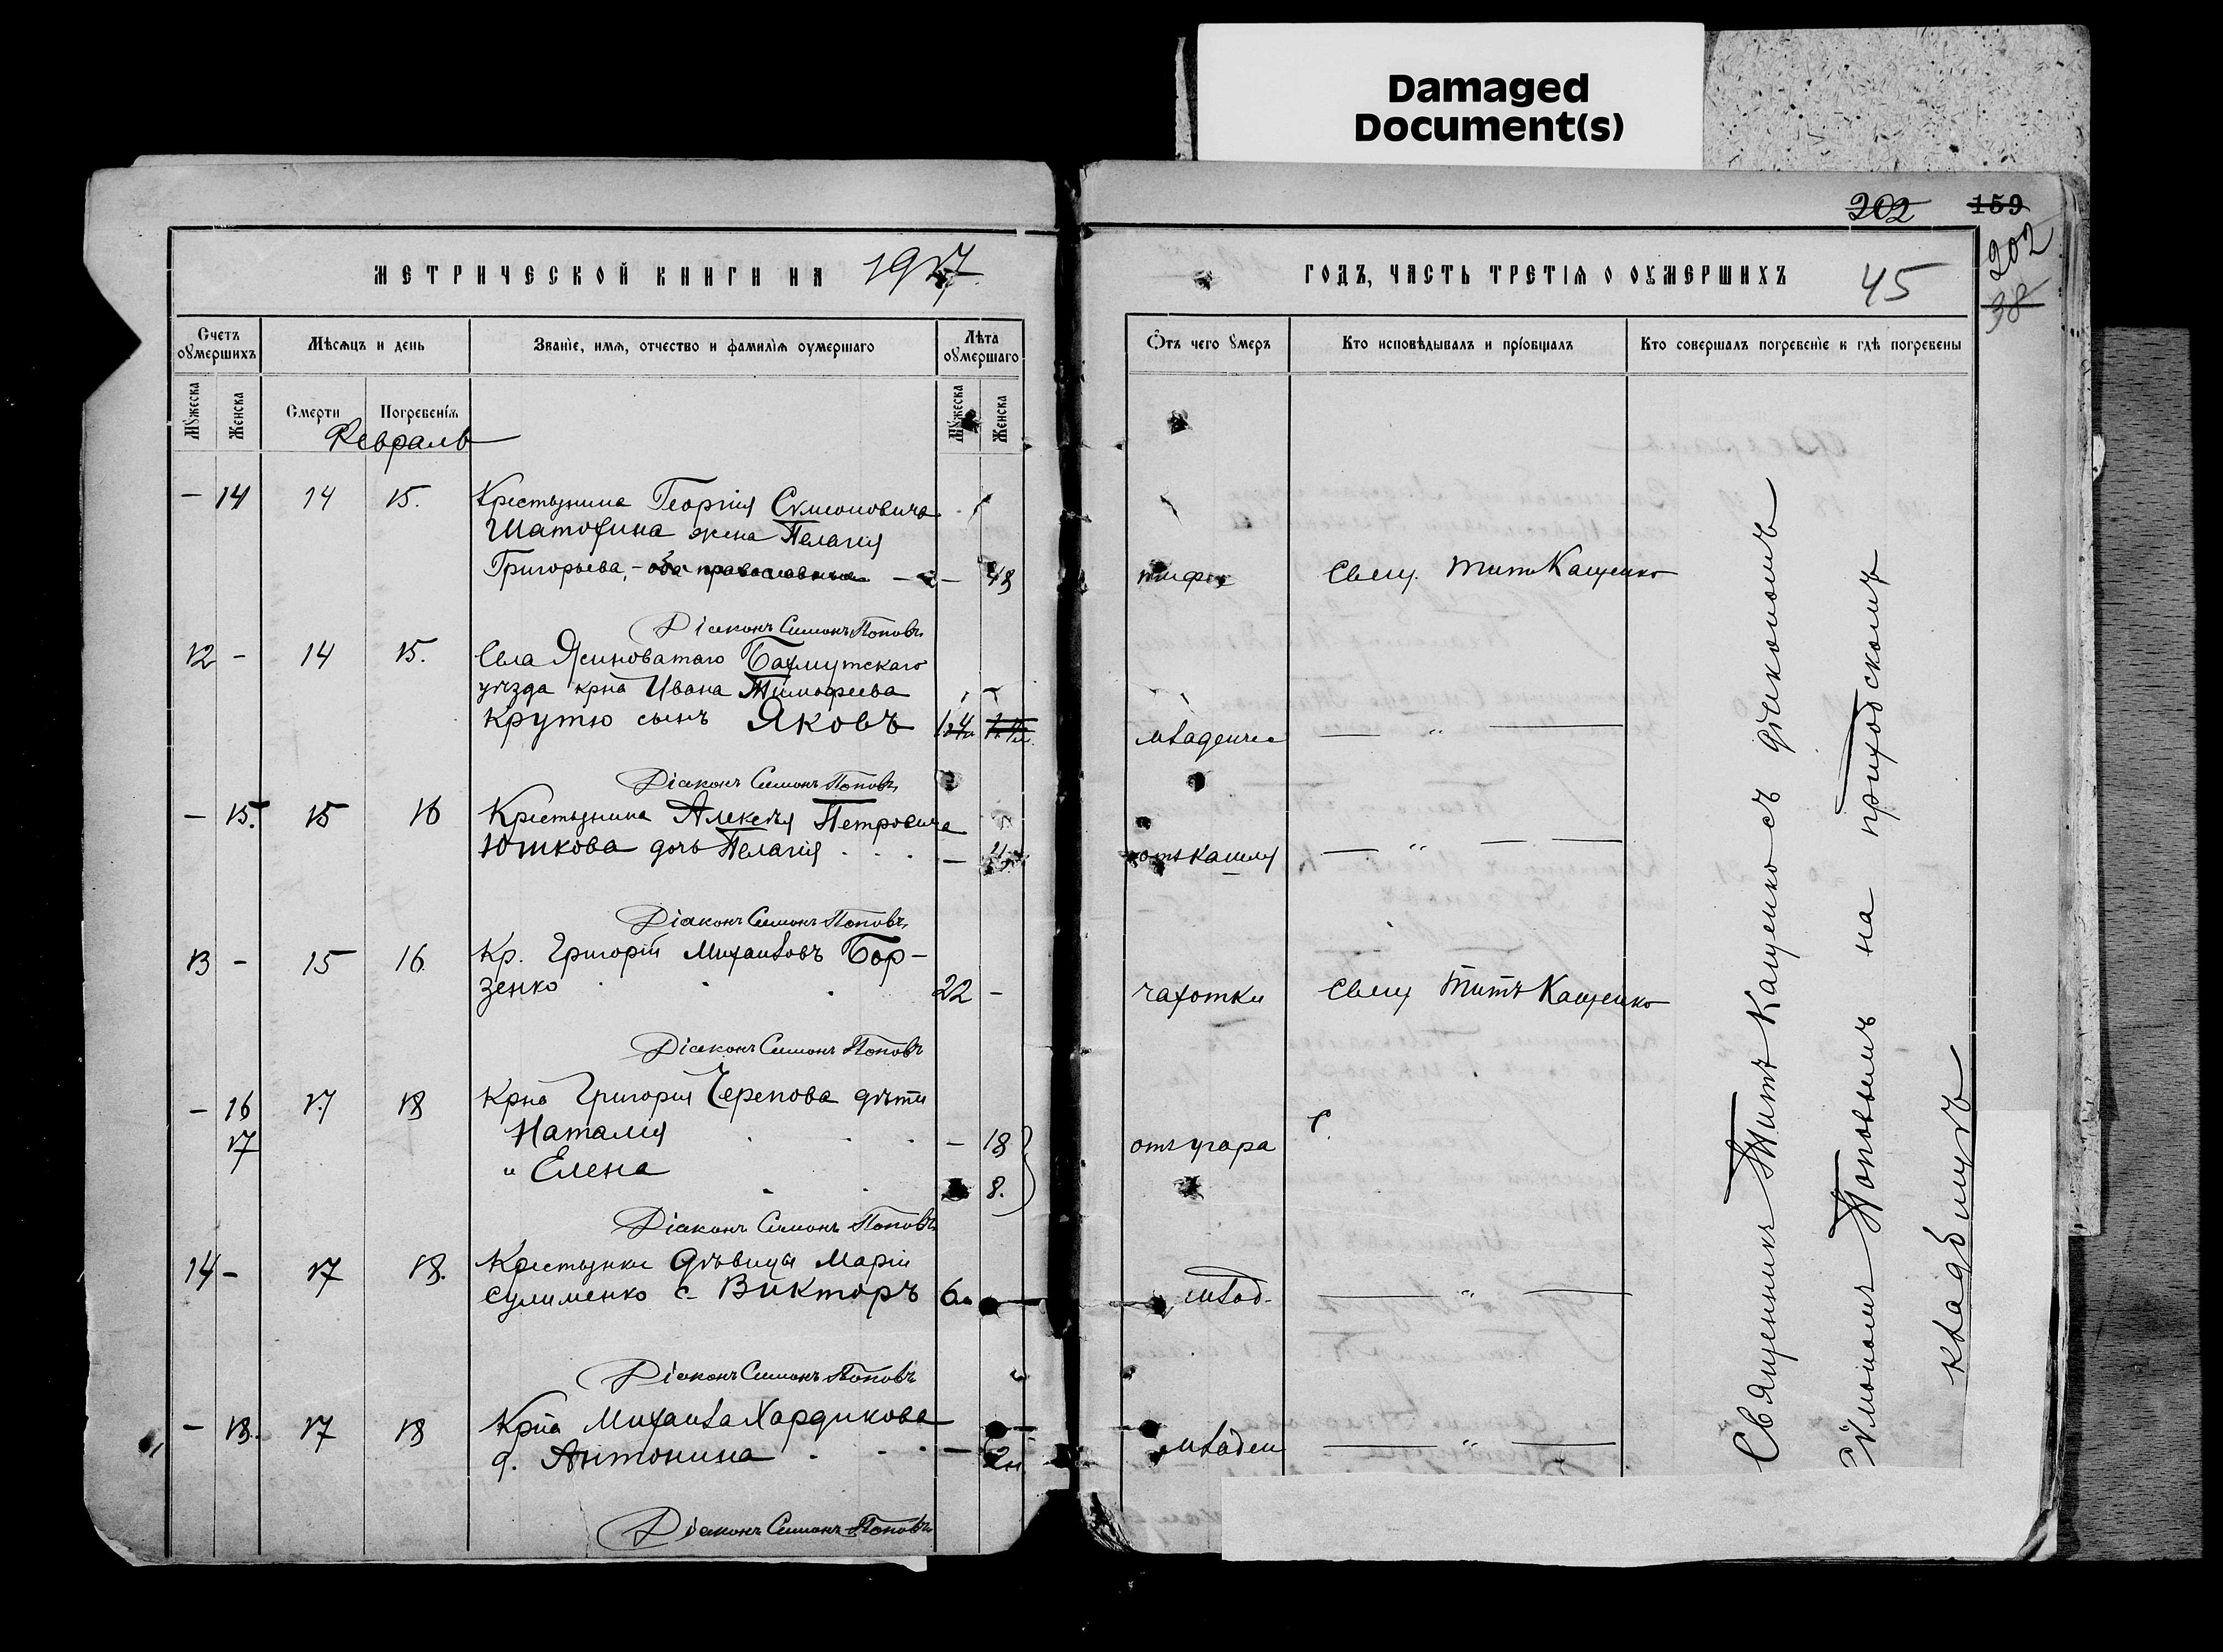 Damaged
Document(s)
202 159
202
38
МЕТРИЧЕСКОЙ КНИГИ НА 1917
ГОДЪ, ЧАСТЬ ТРЕТІЯ О ОУМЕРШИХЪ 45
Счетъ оумершихъ
Мѣсяцъ и день
Званіе, имя, отчество и фамилія оумершаго
Лѣта оумершаго
Мужеска
Женска
Смерти
Погребенія
Мужеска
Женска
Отъ чего умеръ
Кто исповѣдывалъ и пріобщалъ
Кто совершалъ погребеніе и гдѣ погребены
Февраль
– 14 14 15. Крестьянина Георгія Сѵмоновича
Шатохина жена Пелагія
Григорьева, – – 48 тифа Свящ. Титъ Кащенко
Діаконъ Симонъ Поповъ
12 – 14 15. Села Ясиноватаго Бахмутскаго
уѣзда крна Ивана Тимофеева
Крутю сынъ Яковъ младенче — „ —
Діаконъ Симонъ Поповъ
– 15. 15 16 Крестьянина Алексѣя Петровича
Юшкова дочь Пелагія – отъ кашля — „ —
Діаконъ Симонъ Поповъ
13 – 15 16 Кр. Григорій Михаиловъ Бор-
зенко 22 – чахотки Свящ Титъ Кащенко
Діаконъ Симонъ Поповъ
– 16 17 18 Крна Григорія Черепова дѣти
17 Наталія – 18 отъ угара
и Елена 8.
Діаконъ Симонъ Поповъ
14 – 17 18. Крестьянки дѣвицы Маріи
Сулименко с. Викторъ млад. — „ —
Діаконъ Симонъ Поповъ
– 18. 17 18 Крна Михаила Хардикова
д. Антонина – младен — „ —
Діаконъ Симонъ Поповъ
Священникъ Титъ Кащенко съ діакономъ
Сѵмономъ Поповымъ на приходскомъ
кладбищѣ